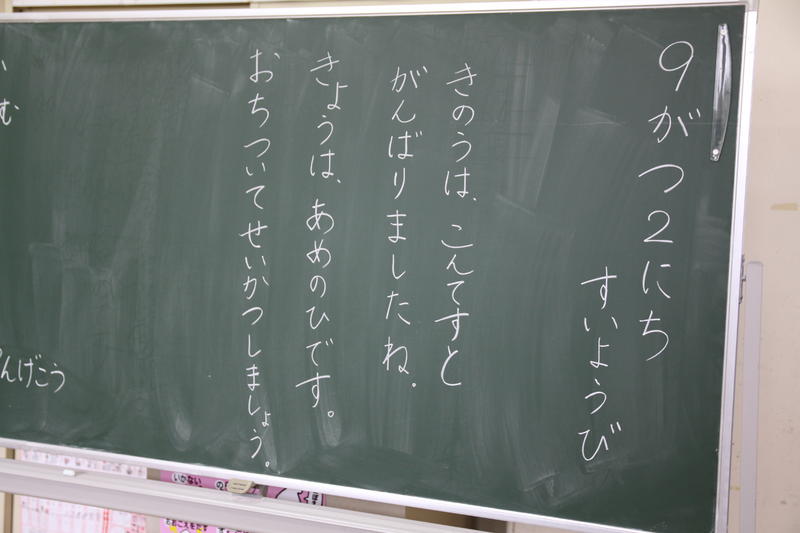 9がつ2にち
すいようび
きのうは、こんてすと
がんばりましたね。
きょうは、あめのひです。
おちついてせいかつしましょう。
む
んげこう